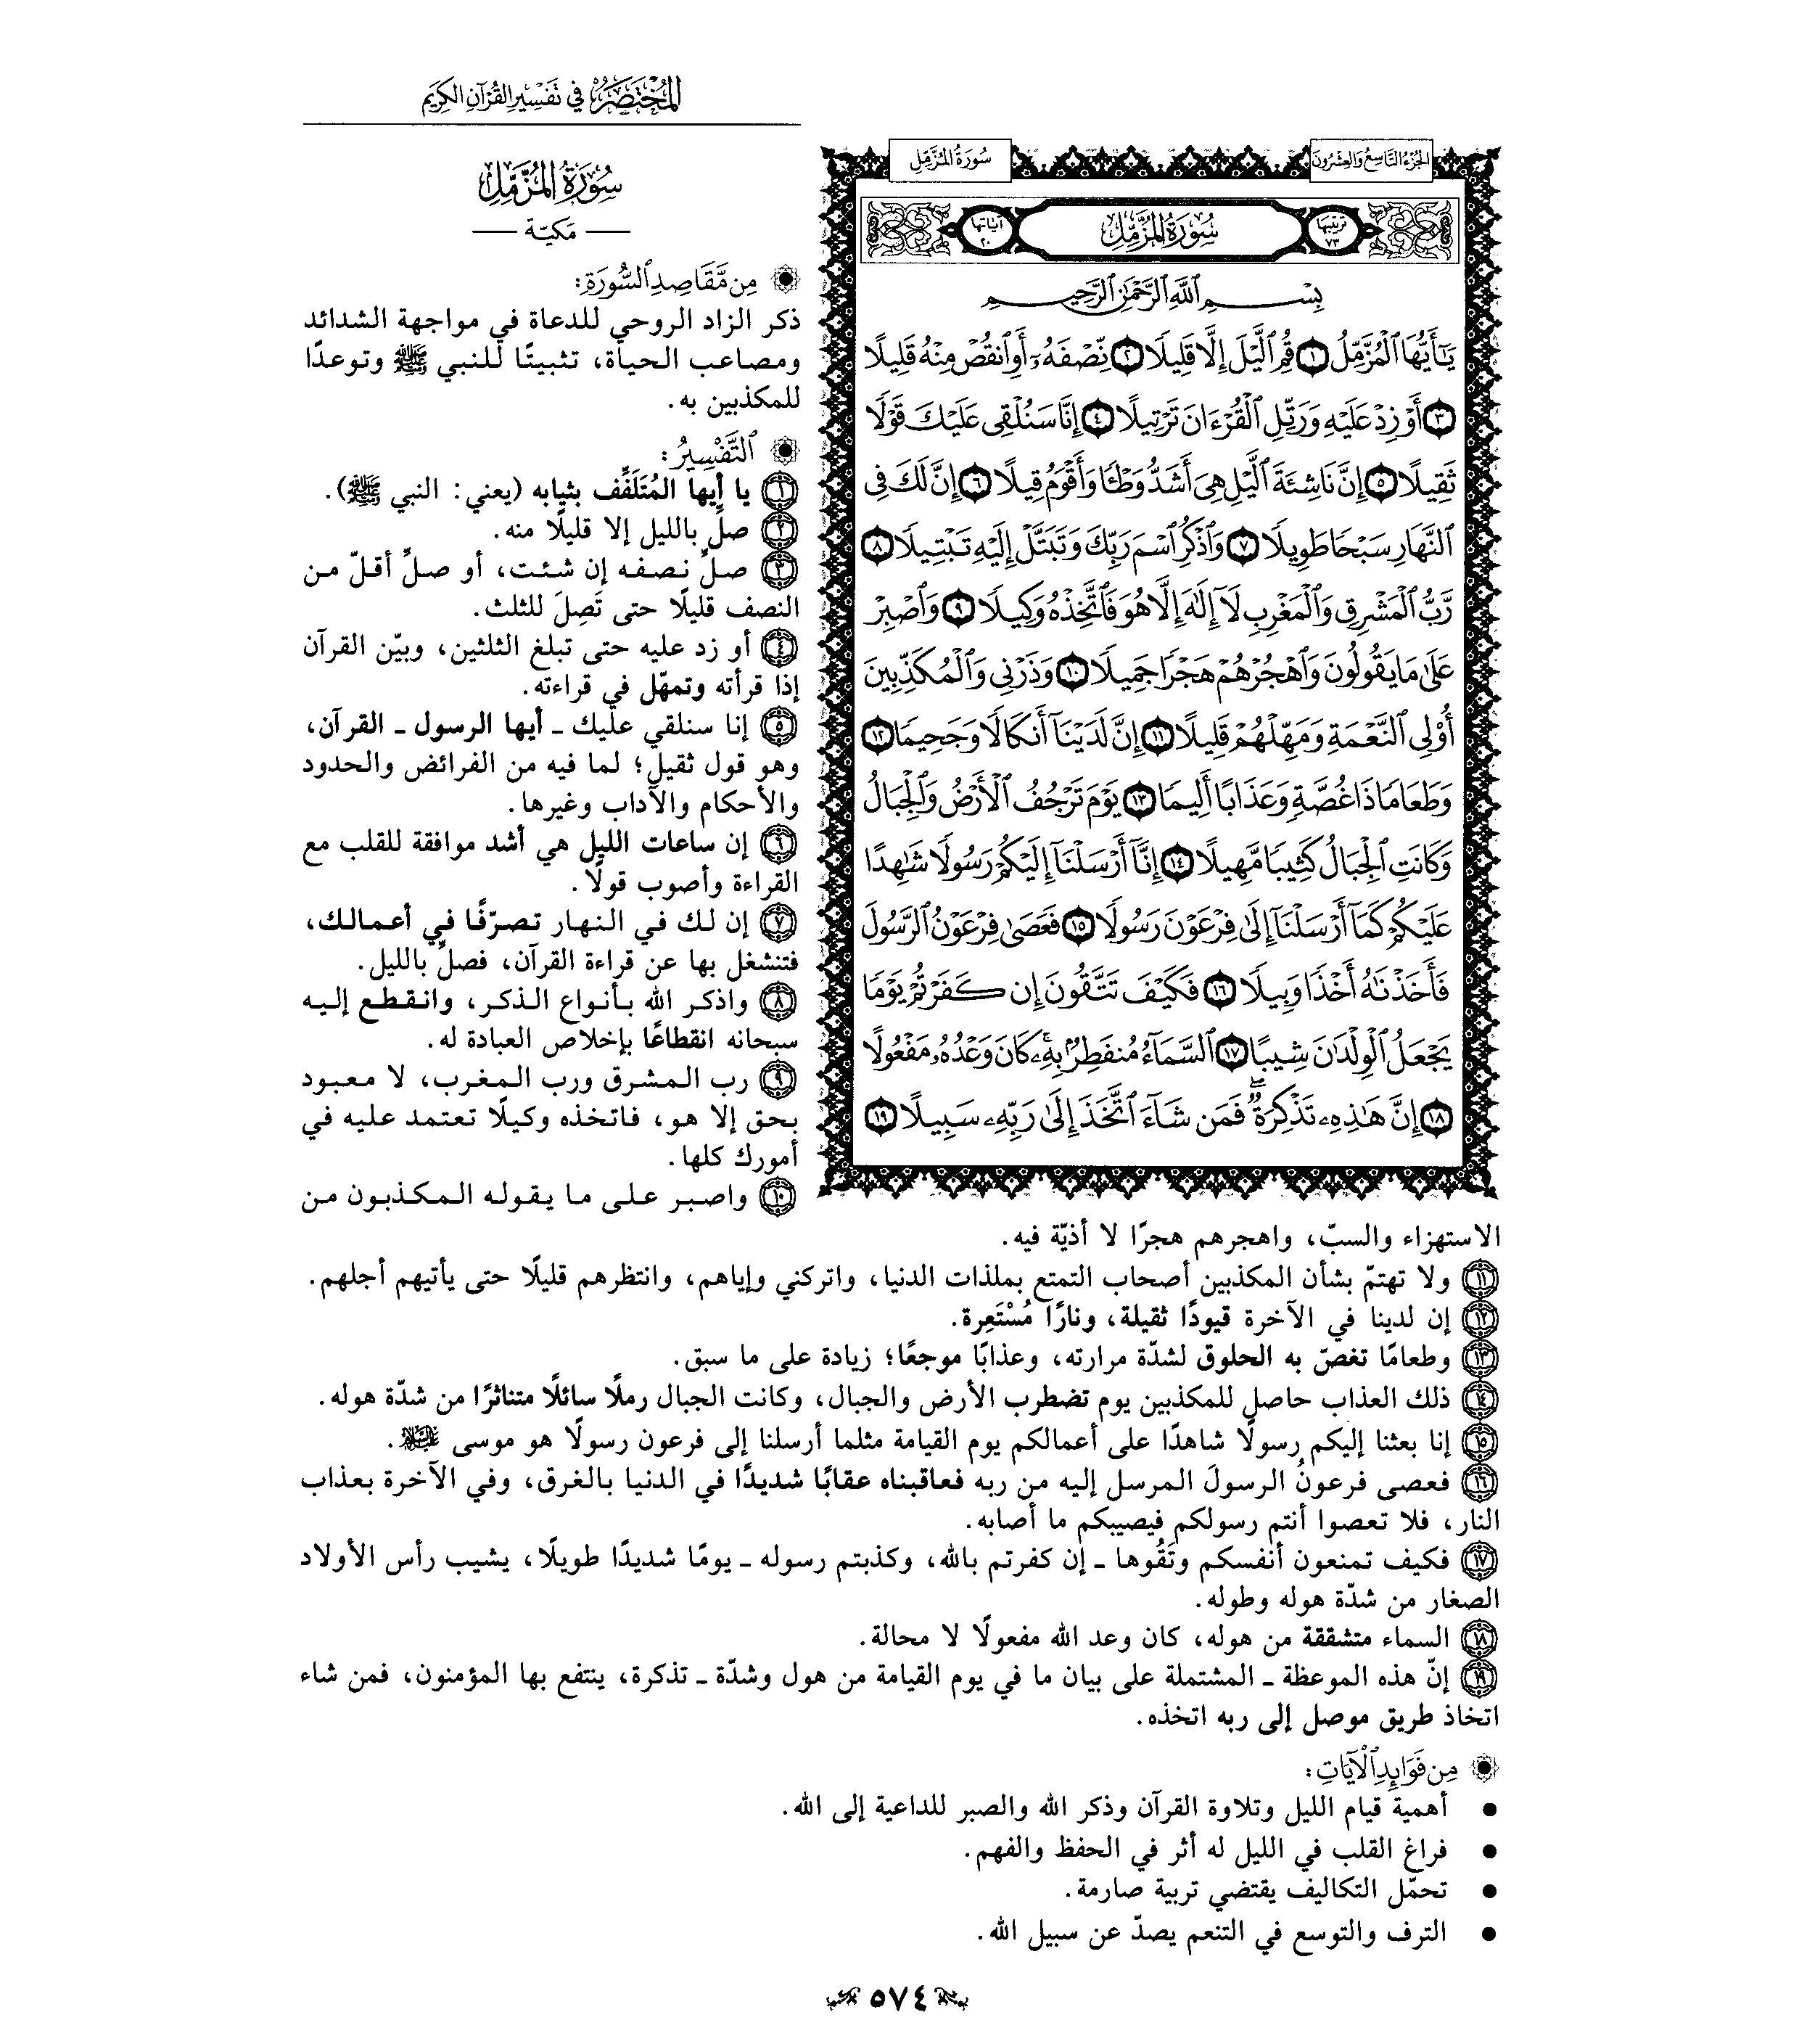 المُخْتَصَرُ في تَفْسِيرِ القُرْآنِ الكَرِيمِ
الجُزْءُ التَّاسِعُ وَالعِشْرُونَ
سُورَةُ المُزَّمِّلِ
ترتيبها ٧٣
سُورَةُ المُزَّمِّلِ
آياتها ٢٠
بِسْمِ ٱللَّهِ ٱلرَّحْمَٰنِ ٱلرَّحِيمِ
يَٰٓأَيُّهَا ٱلْمُزَّمِّلُ ١ قُمِ ٱلَّيْلَ إِلَّا قَلِيلًا ٢ نِّصْفَهُۥٓ أَوِ ٱنقُصْ مِنْهُ قَلِيلًا
٣ أَوْ زِدْ عَلَيْهِ وَرَتِّلِ ٱلْقُرْءَانَ تَرْتِيلًا ٤ إِنَّا سَنُلْقِى عَلَيْكَ قَوْلًا
ثَقِيلًا ٥ إِنَّ نَاشِئَةَ ٱلَّيْلِ هِىَ أَشَدُّ وَطْـًٔا وَأَقْوَمُ قِيلًا ٦ إِنَّ لَكَ فِى
ٱلنَّهَارِ سَبْحًا طَوِيلًا ٧ وَٱذْكُرِ ٱسْمَ رَبِّكَ وَتَبَتَّلْ إِلَيْهِ تَبْتِيلًا ٨
رَّبُّ ٱلْمَشْرِقِ وَٱلْمَغْرِبِ لَآ إِلَٰهَ إِلَّا هُوَ فَٱتَّخِذْهُ وَكِيلًا ٩ وَٱصْبِرْ
عَلَىٰ مَا يَقُولُونَ وَٱهْجُرْهُمْ هَجْرًا جَمِيلًا ١٠ وَذَرْنِى وَٱلْمُكَذِّبِينَ
أُو۟لِى ٱلنَّعْمَةِ وَمَهِّلْهُمْ قَلِيلًا ١١ إِنَّ لَدَيْنَآ أَنكَالًا وَجَحِيمًا ١٢
وَطَعَامًا ذَا غُصَّةٍ وَعَذَابًا أَلِيمًا ١٣ يَوْمَ تَرْجُفُ ٱلْأَرْضُ وَٱلْجِبَالُ
وَكَانَتِ ٱلْجِبَالُ كَثِيبًا مَّهِيلًا ١٤ إِنَّآ أَرْسَلْنَآ إِلَيْكُمْ رَسُولًا شَٰهِدًا
عَلَيْكُمْ كَمَآ أَرْسَلْنَآ إِلَىٰ فِرْعَوْنَ رَسُولًا ١٥ فَعَصَىٰ فِرْعَوْنُ ٱلرَّسُولَ
فَأَخَذْنَٰهُ أَخْذًا وَبِيلًا ١٦ فَكَيْفَ تَتَّقُونَ إِن كَفَرْتُمْ يَوْمًا
يَجْعَلُ ٱلْوِلْدَٰنَ شِيبًا ١٧ ٱلسَّمَآءُ مُنفَطِرٌۢ بِهِۦ ۚ كَانَ وَعْدُهُۥ مَفْعُولًا
١٨ إِنَّ هَٰذِهِۦ تَذْكِرَةٌ ۖ فَمَن شَآءَ ٱتَّخَذَ إِلَىٰ رَبِّهِۦ سَبِيلًا ١٩
سُورَةُ المُزَّمِّلِ
— مَكيّة —
مِن مَّقَاصِدِ ٱلسُّورَةِ:
ذكر الزاد الروحي للدعاة في مواجهة الشدائد
ومصاعب الحياة، تثبيتًا للنبي ﷺ وتوعدًا
للمكذبين به.
ٱلتَّفْسِيرُ:
١ يا أيها المُتَلَفِّف بثيابه (يعني: النبي ﷺ).
٢ صلِّ بالليل إلا قليلًا منه.
٣ صلِّ نصفه إن شئت، أو صلِّ أقلّ من
النصف قليلًا حتى تَصِلَ للثلث.
٤ أو زد عليه حتى تبلغ الثلثين، وبيّن القرآن
إذا قرأته وتمهّل في قراءته.
٥ إنا سنلقي عليك ـ أيها الرسول ـ القرآن،
وهو قول ثقيل؛ لما فيه من الفرائض والحدود
والأحكام والآداب وغيرها.
٦ إن ساعات الليل هي أشد موافقة للقلب مع
القراءة وأصوب قولًا.
٧ إن لك في النهار تصرّفًا في أعمالك،
فتنشغل بها عن قراءة القرآن، فصلِّ بالليل.
٨ واذكر الله بأنواع الذكر، وانقطع إليه
سبحانه انقطاعًا بإخلاص العبادة له.
٩ رب المشرق ورب المغرب، لا معبود
بحق إلا هو، فاتخذه وكيلًا تعتمد عليه في
أمورك كلها.
١٠ واصبر على ما يقوله المكذبون من
الاستهزاء والسبّ، واهجرهم هجرًا لا أذيّة فيه.
١١ ولا تهتمّ بشأن المكذبين أصحاب التمتع بملذات الدنيا، واتركني وإياهم، وانتظرهم قليلًا حتى يأتيهم أجلهم.
١٢ إن لدينا في الآخرة قيودًا ثقيلة، ونارًا مُسْتَعِرة.
١٣ وطعامًا تغصّ به الحلوق لشدّة مرارته، وعذابًا موجعًا؛ زيادة على ما سبق.
١٤ ذلك العذاب حاصل للمكذبين يوم تضطرب الأرض والجبال، وكانت الجبال رملًا سائلًا متناثرًا من شدّة هوله.
١٥ إنا بعثنا إليكم رسولًا شاهدًا على أعمالكم يوم القيامة مثلما أرسلنا إلى فرعون رسولًا هو موسى عليه السلام.
١٦ فعصى فرعونُ الرسولَ المرسل إليه من ربه فعاقبناه عقابًا شديدًا في الدنيا بالغرق، وفي الآخرة بعذاب
النار، فلا تعصوا أنتم رسولكم فيصيبكم ما أصابه.
١٧ فكيف تمنعون أنفسكم وتَقُوها ـ إن كفرتم بالله، وكذبتم رسوله ـ يومًا شديدًا طويلًا، يشيب رأس الأولاد
الصغار من شدّة هوله وطوله.
١٨ السماء متشققة من هوله، كان وعد الله مفعولًا لا محالة.
١٩ إنّ هذه الموعظة ـ المشتملة على بيان ما في يوم القيامة من هول وشدّة ـ تذكرة، ينتفع بها المؤمنون، فمن شاء
اتخاذ طريق موصل إلى ربه اتخذه.
مِن فَوَائِدِ ٱلْآيَاتِ:
• أهمية قيام الليل وتلاوة القرآن وذكر الله والصبر للداعية إلى الله.
• فراغ القلب في الليل له أثر في الحفظ والفهم.
• تحمّل التكاليف يقتضي تربية صارمة.
• الترف والتوسع في التنعم يصدّ عن سبيل الله.
٥٧٤